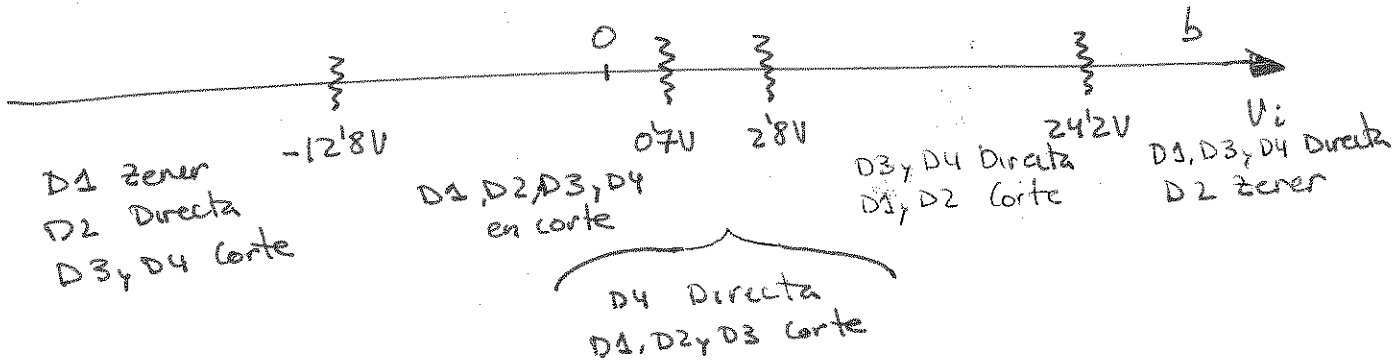 0
b
-12'8V
0'7V
2'8V
24'2V
Vi
D1 Zener
D2 Directa
D3 y D4 Corte
D1, D2, D3, D4
en corte
D4 Directa
D1, D2 y D3 Corte
D3 y D4 Directa
D1, D2 Corte
D1, D3, D4 Directa
D2 Zener